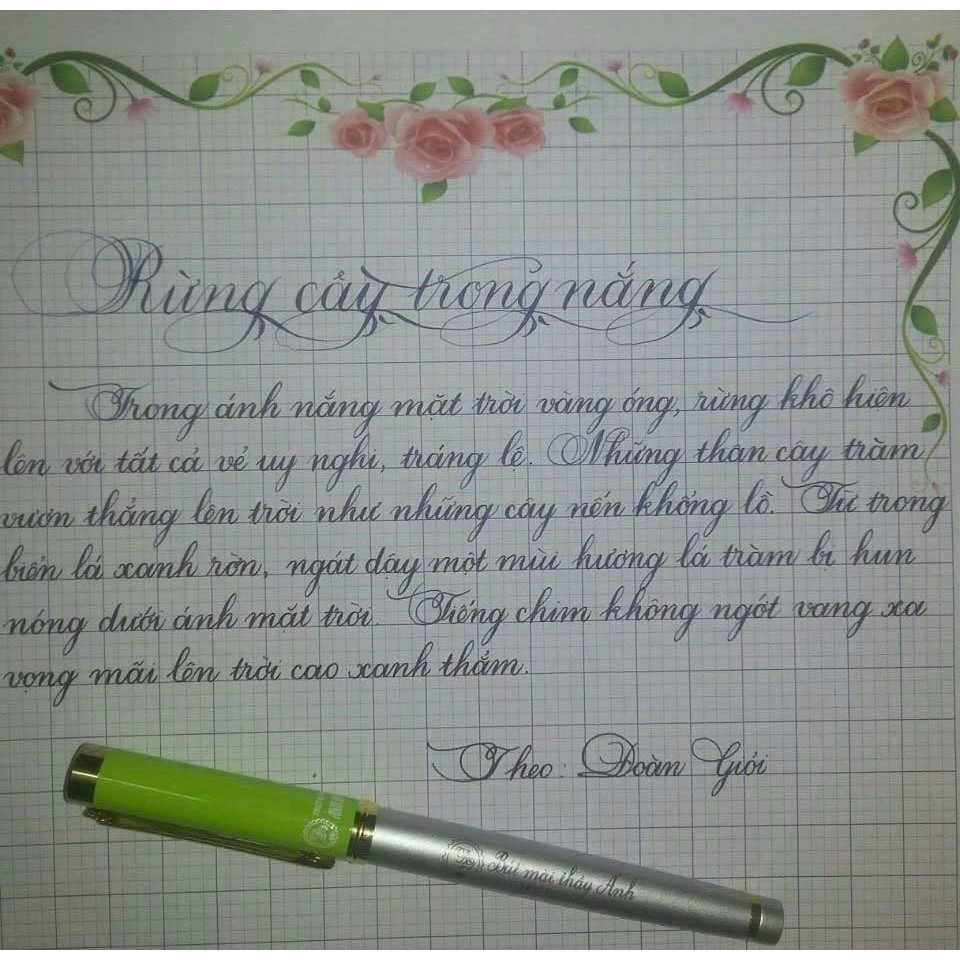 Rừng cây trong nắng
Trong ánh nắng mặt trời vàng óng, rừng khô hiện
lên với tất cả vẻ uy nghi, tráng lệ. Những thân cây tràm
vươn thẳng lên trời như những cây nến khổng lồ. Từ trong
biển lá xanh rờn, ngát dậy một mùi hương lá tràm bị hun
nóng dưới ánh mặt trời. Tiếng chim không ngớt vang xa
vọng mãi lên trời cao xanh thẳm.
Theo: Đoàn Giỏi
Bút mài thầy Ánh